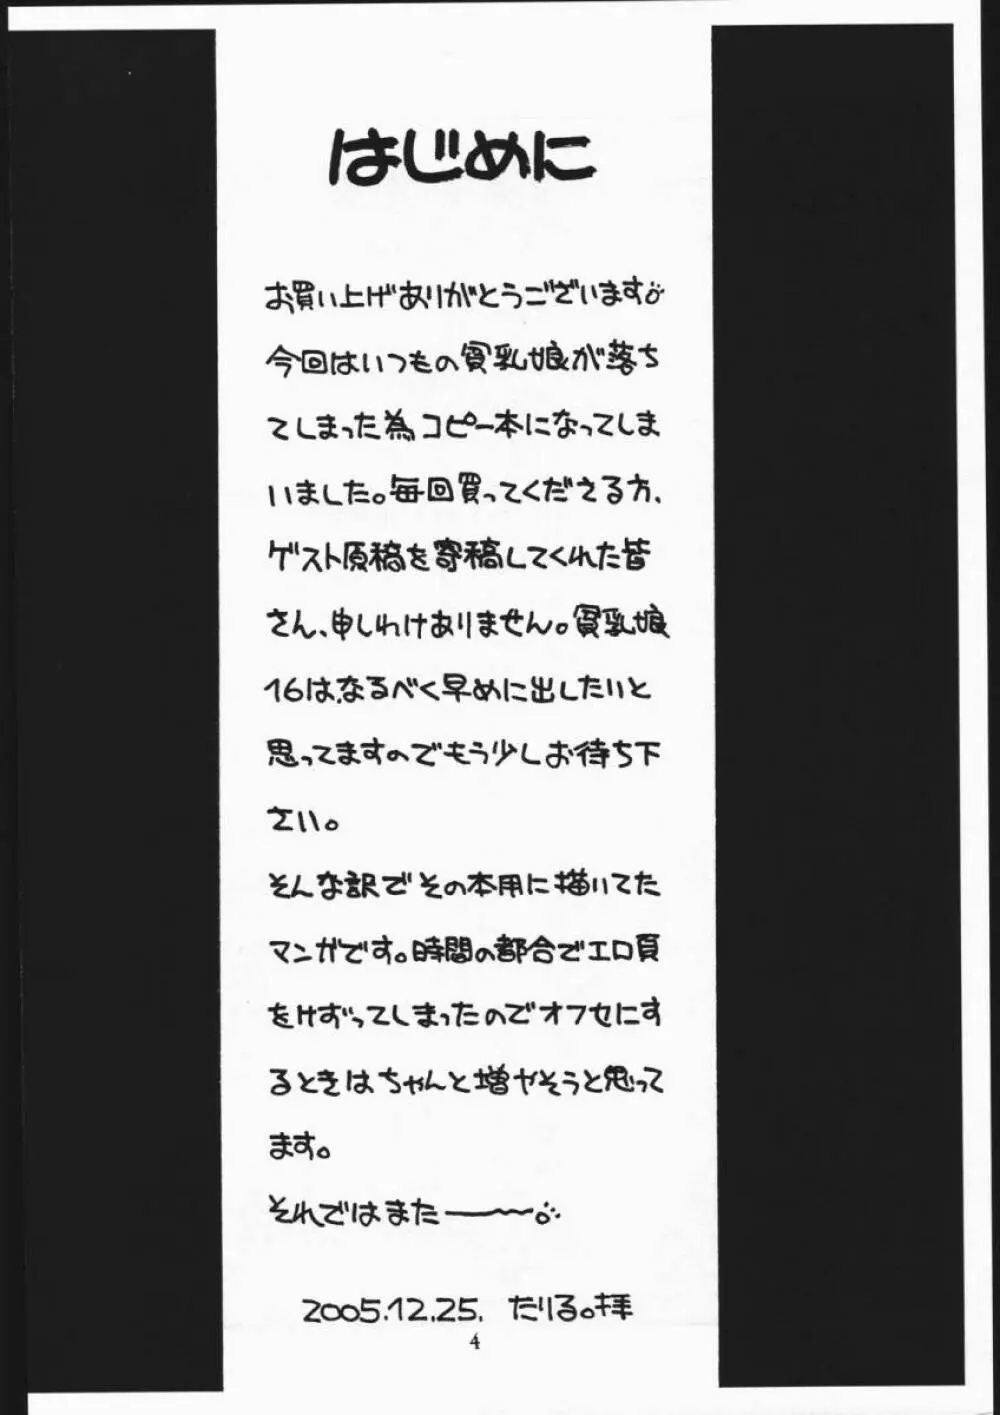 はじめに
お買い上げありがとうございます。
今回はいつもの貧乳娘が落ち
てしまった為コピー本になってしま
いました。毎回買ってくださる方、
ゲスト原稿を寄稿してくれた皆
さん、申しわけありません。貧乳娘
16は、なるべく早めに出したいと
思ってますのでもう少しお待ち下
さい。
そんな訳でその本用に描いてた
マンガです。時間の都合でエロ頁
をけずってしまったのでオフセにす
るときはちゃんと増やそうと思って
ます。
それではまた──〜。
2005.12.25. たりる。拝
4